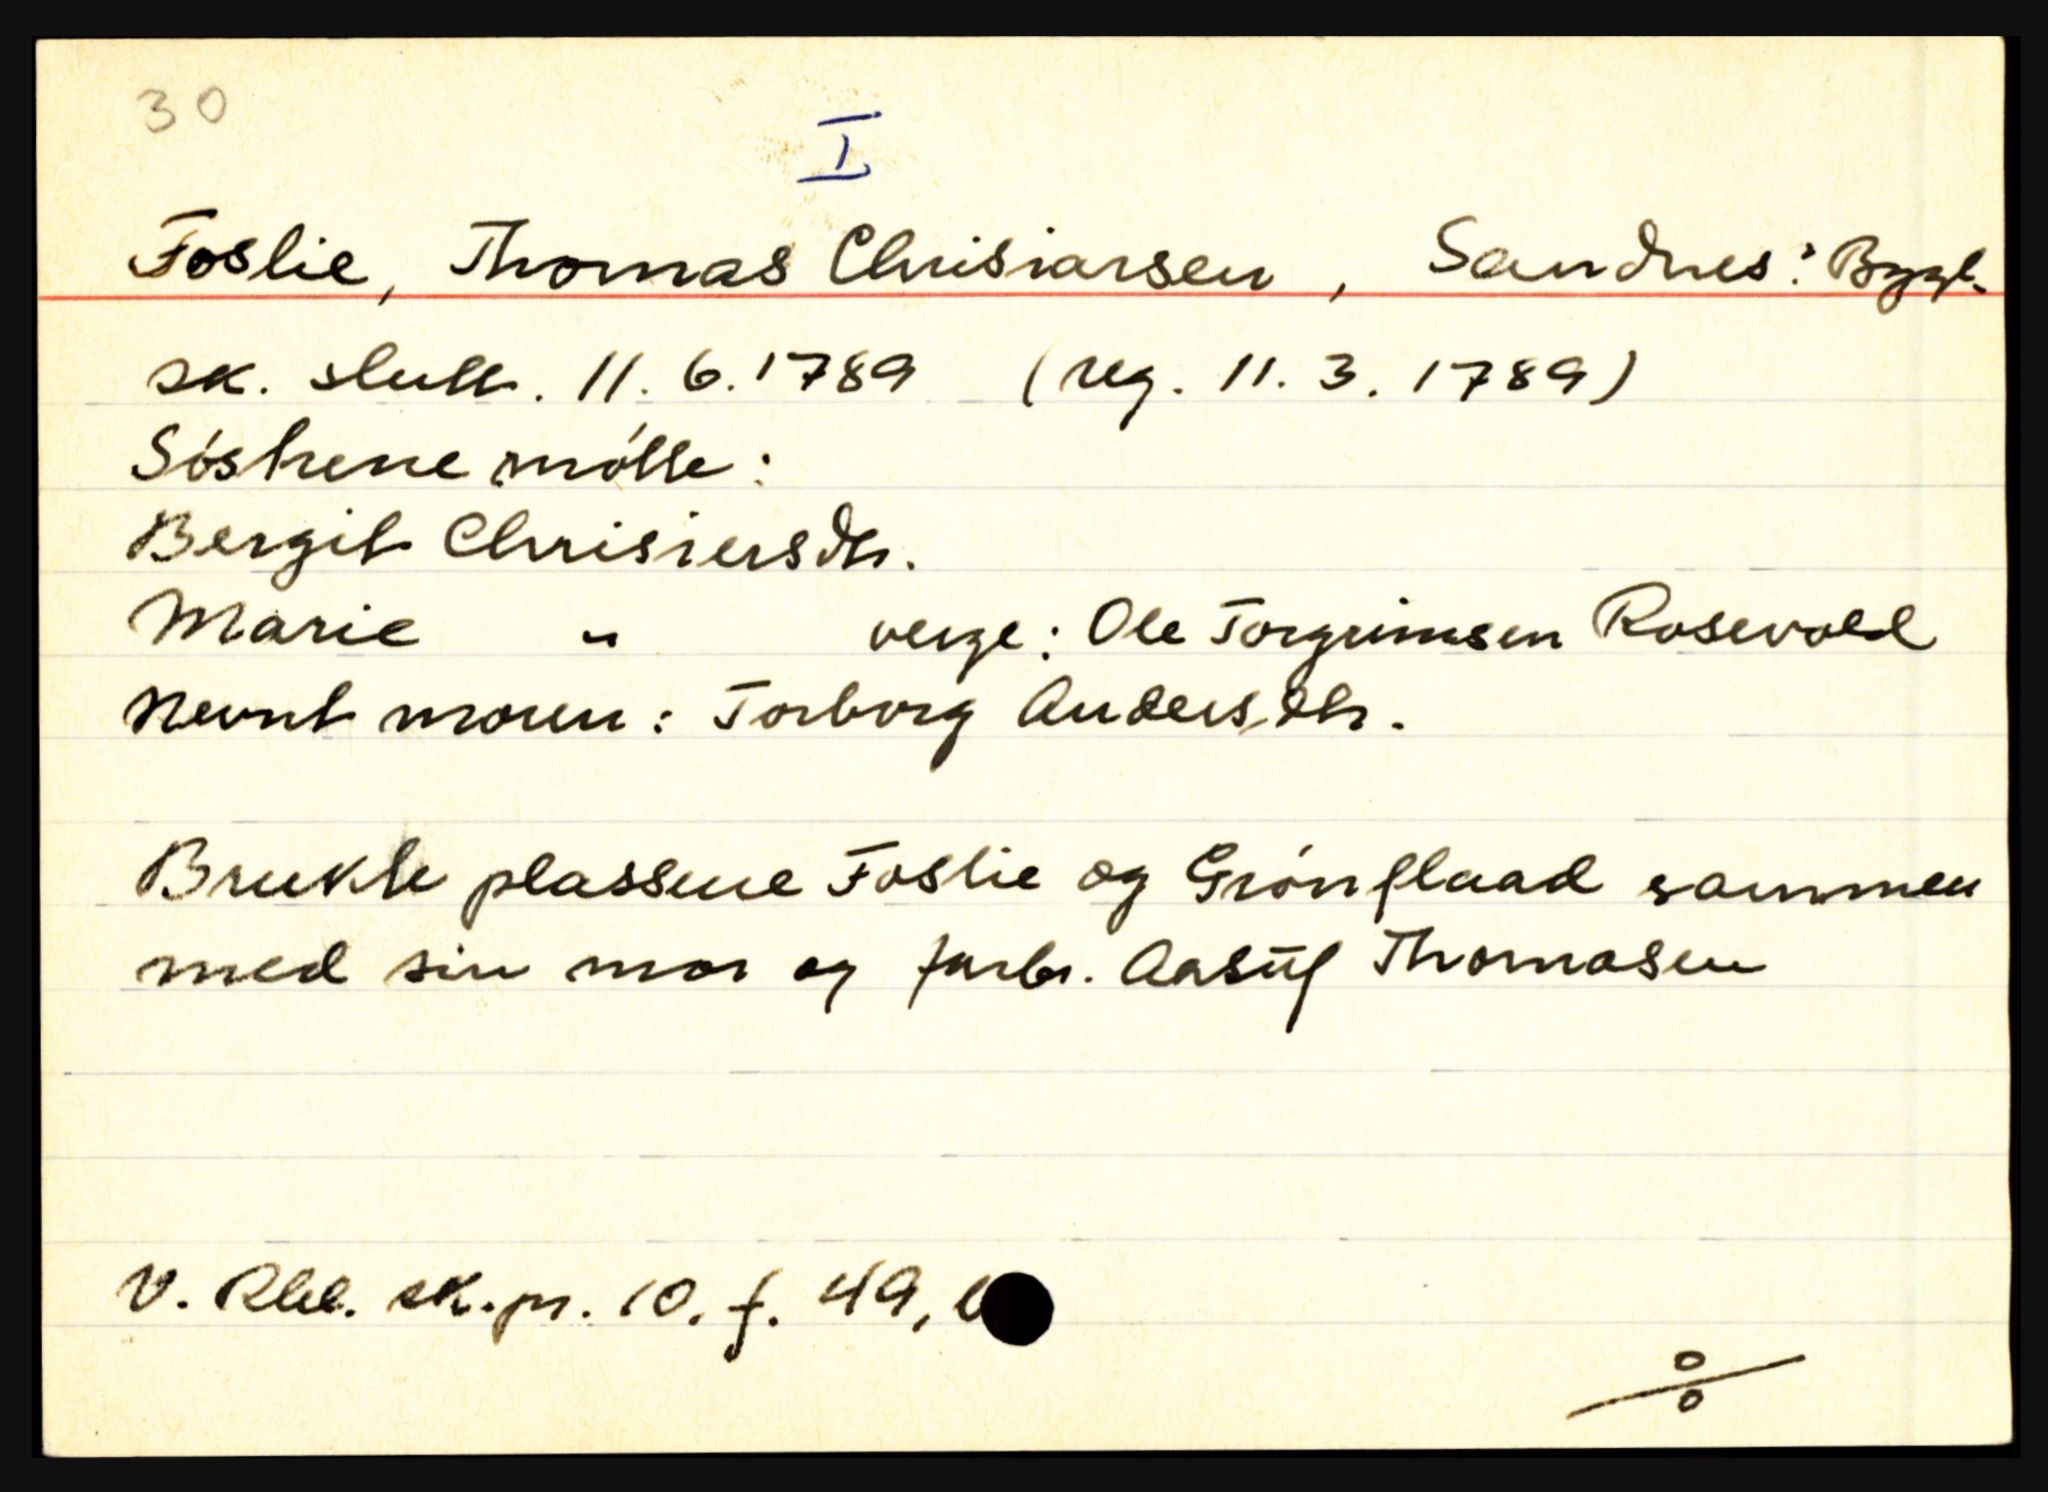 30
I
Foslie, Thomas Chrisiansen, Sandnes: Bygl.
sk. slutt. 11.6.1789 (reg. 11.3.1789)
Sóstrene mótte:
Bergit Chrisiensdtr.
Marie " verge: Ole Torgrimsen Rosevold
Nevnt moren: Torborg Andersdtr.
Brukte plassene Foslie og Grónflaad sammen
med sin mor og farbr. Aasúlf Thomasen
V. Rbl. sk.pr. 10. f. 49, b